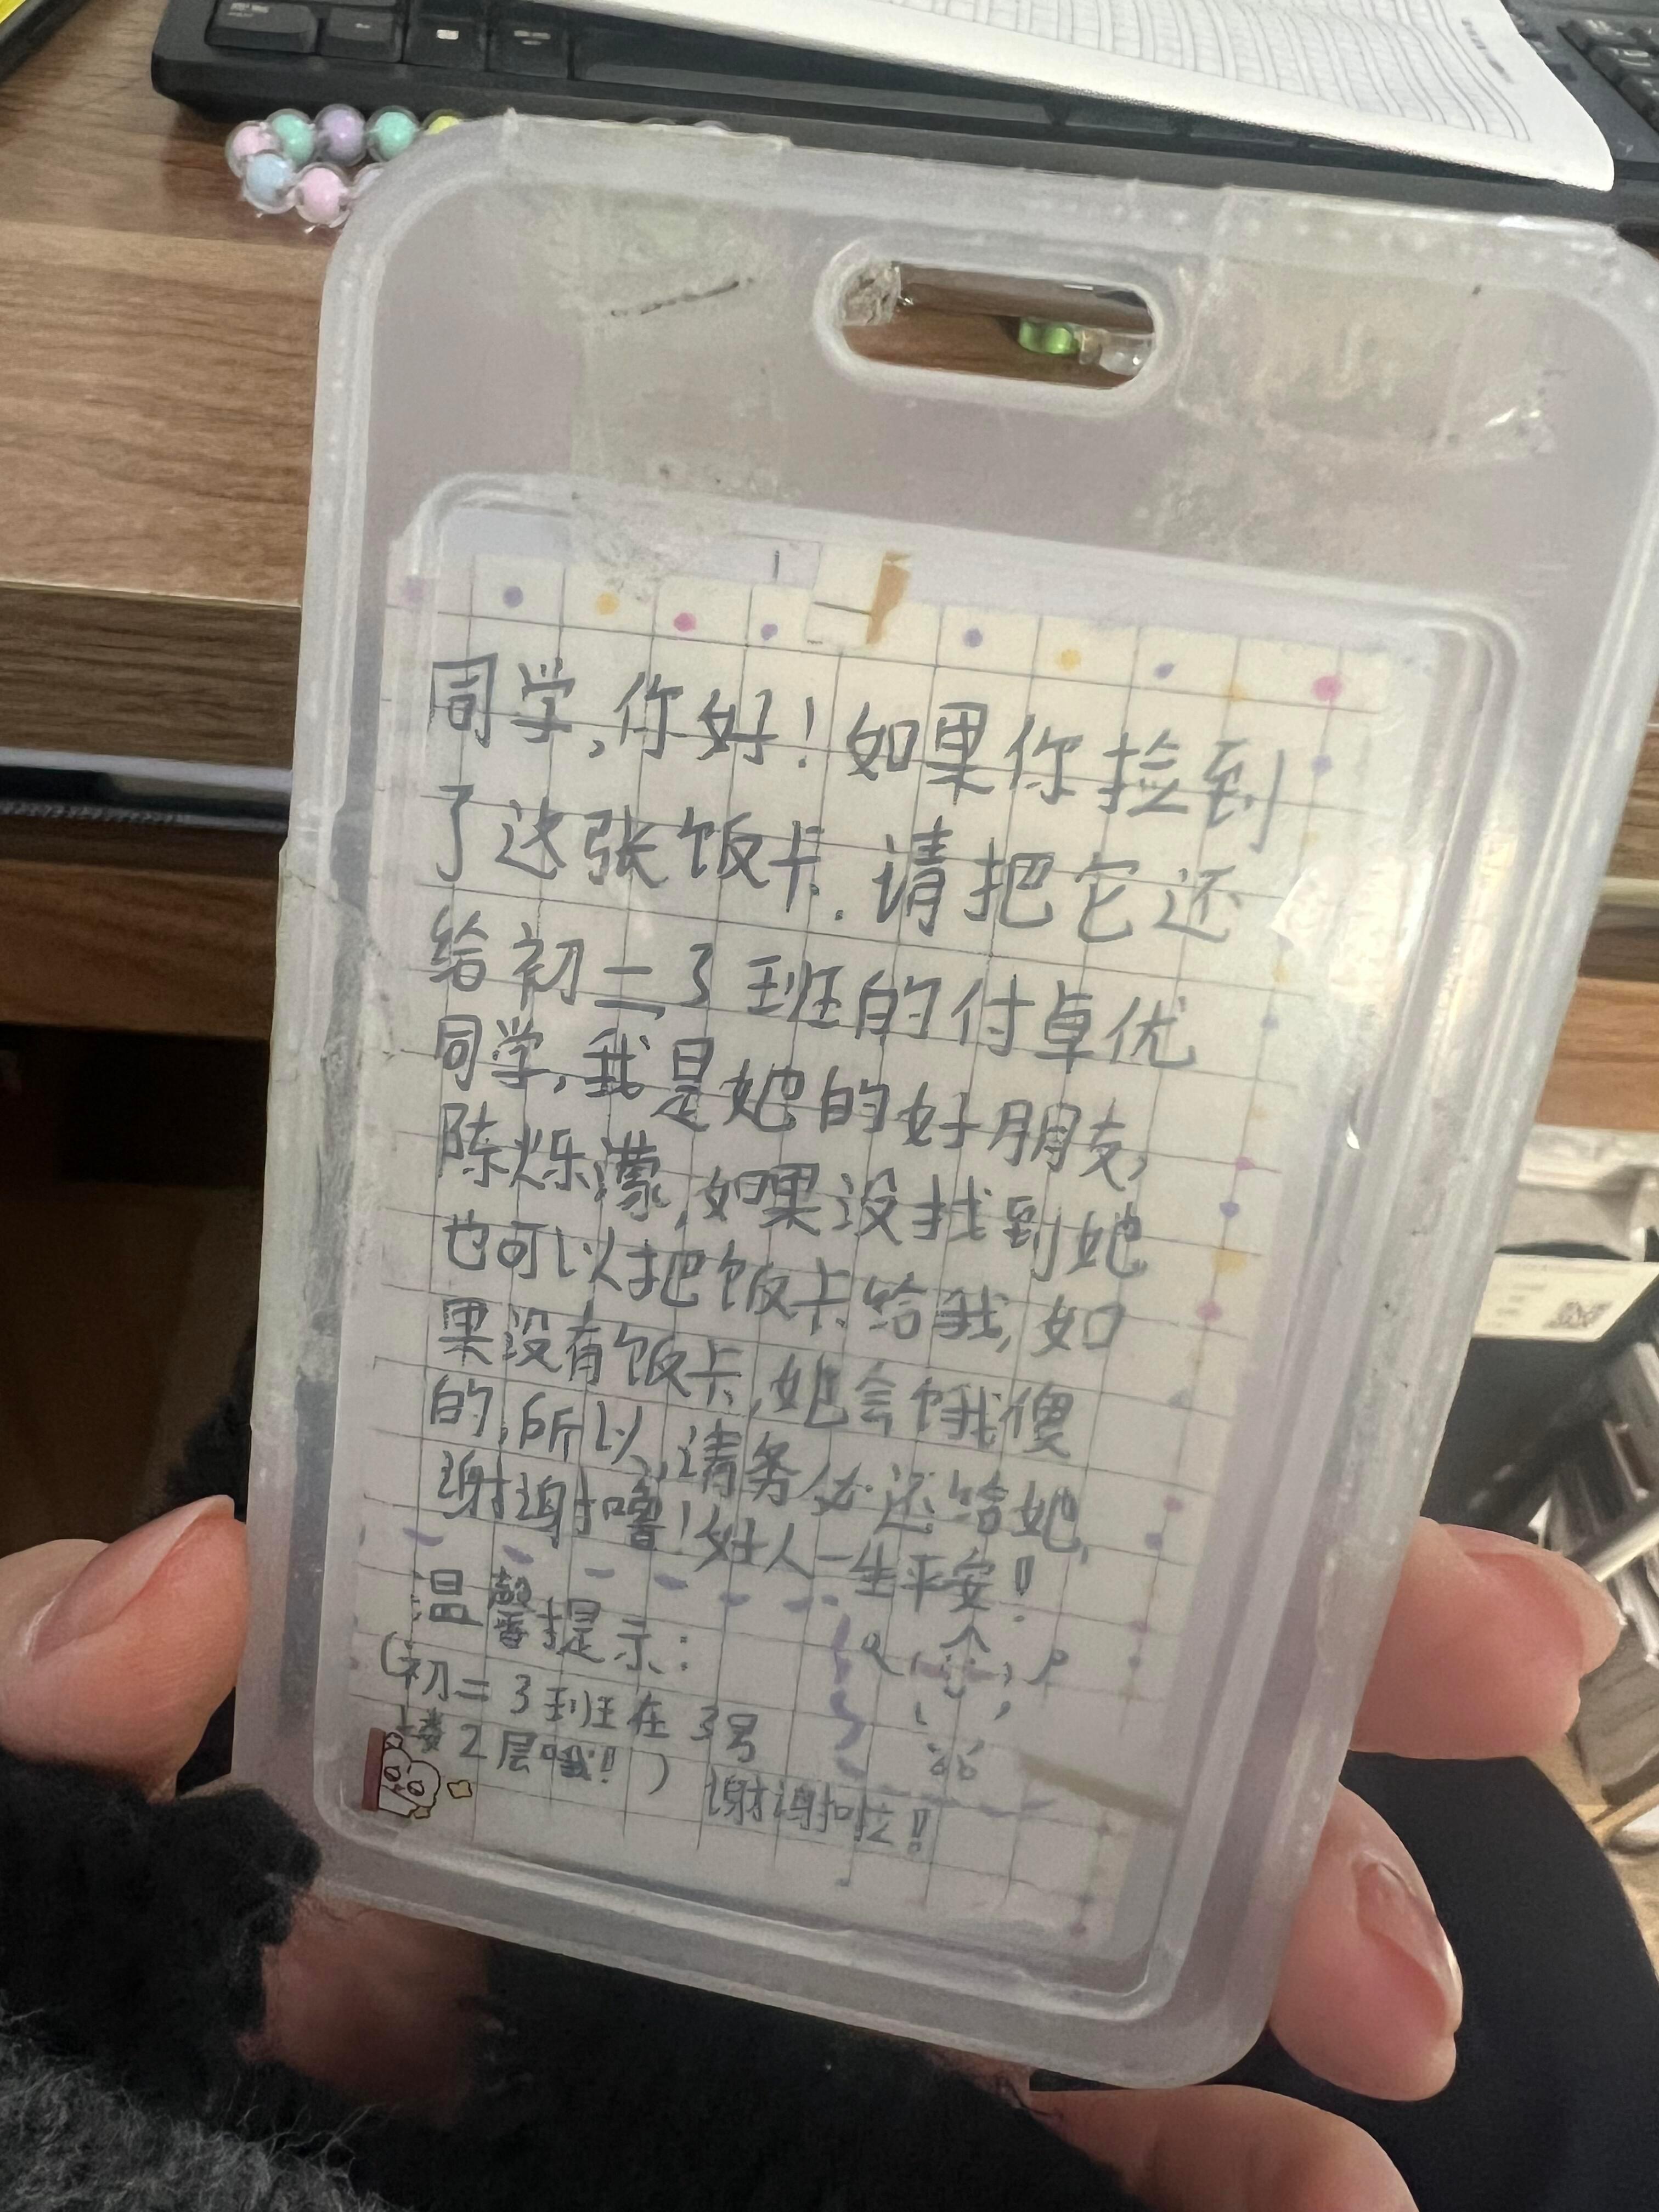 同学,你好!如果你捡到
了这张饭卡.请把它还
给初二3班的付卓优
同学,我是她的好朋友,
陈烁濛,如果没找到她
也可以把饭卡给我,如
果没有饭卡,她会饿傻
的,所以,请务必还给她,
谢谢噜!好人一生平安!
温馨提示:
(初二3班在3号
楼2层哦!)
谢谢啦!